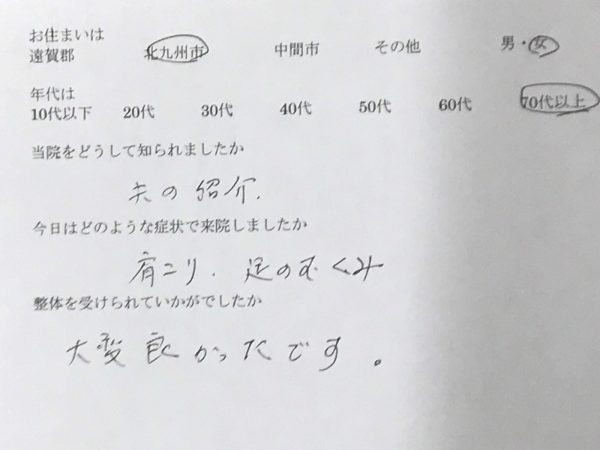 お住まいは
遠賀郡 北九州市 中間市 その他 男・女
年代は
10代以下 20代 30代 40代 50代 60代 70代以上
当院をどうして知られましたか
夫の紹介.
今日はどのような症状で来院しましたか
肩こり.足のむくみ
整体を受けられていかがでしたか
大変良かったです。